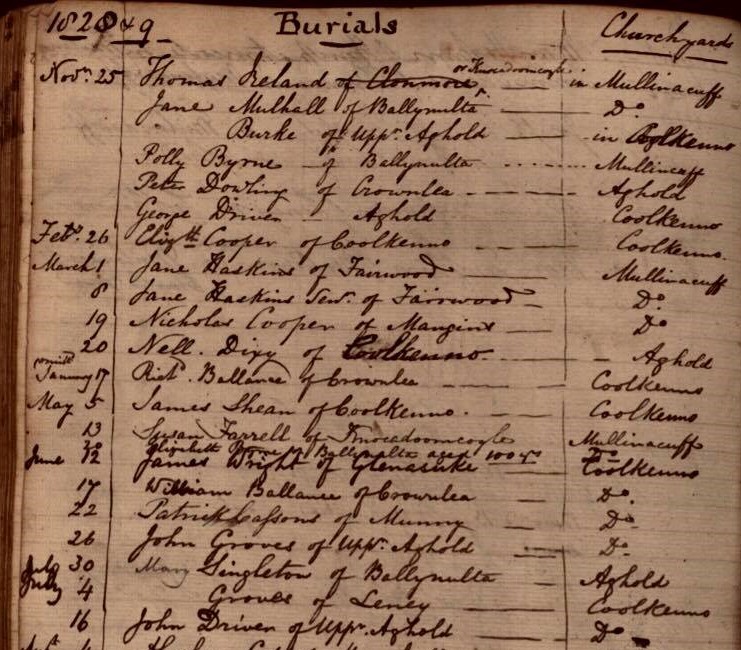 1828 & 9 Burials Churchyards
Novr. 25 Thomas Ireland of Clonmore or Knocedoomcogle in Mullinacuff
Jane Mulhall of Ballynulta Do
Burke of Uppr. Aghold in Coolkenno
Polly Byrne of Ballynulta Mullincuff
Peter Dowling of Crownlea Aghold
George Driver Aghold Coolkenno
Feby. 26 Elizth. Cooper of Coolkenno Coolkenno.
March 1 Jane Haskins of Fairwood Mullinacuff
8 Jane Haskins Senr. of Fairwood Do
19 Nicholas Cooper of Mangins Do
20 Nell. Dixy of Coolkenno Aghold
January 17 Richd. Ballance of Crownlea Coolkenno
May 5 James Shean of Coolkenno. Coolkenno
13 Susan Farrell of Knocedoomcogle Mullinacuff
30 Elizabeth of Ballynulta aged 100 yrs Do
June 12 James Wright of Glenaskuke Coolkenno
17 William Ballance of Crownlea Do.
22 Patrick Cassons of Munny Do
26 John Groves of Uppr. Aghold Do
30 Mary Singleton of Ballynulta Aghold
July 4 Groves of Leney Coolkenno
16 John Driver of Uppr. Aghold Do